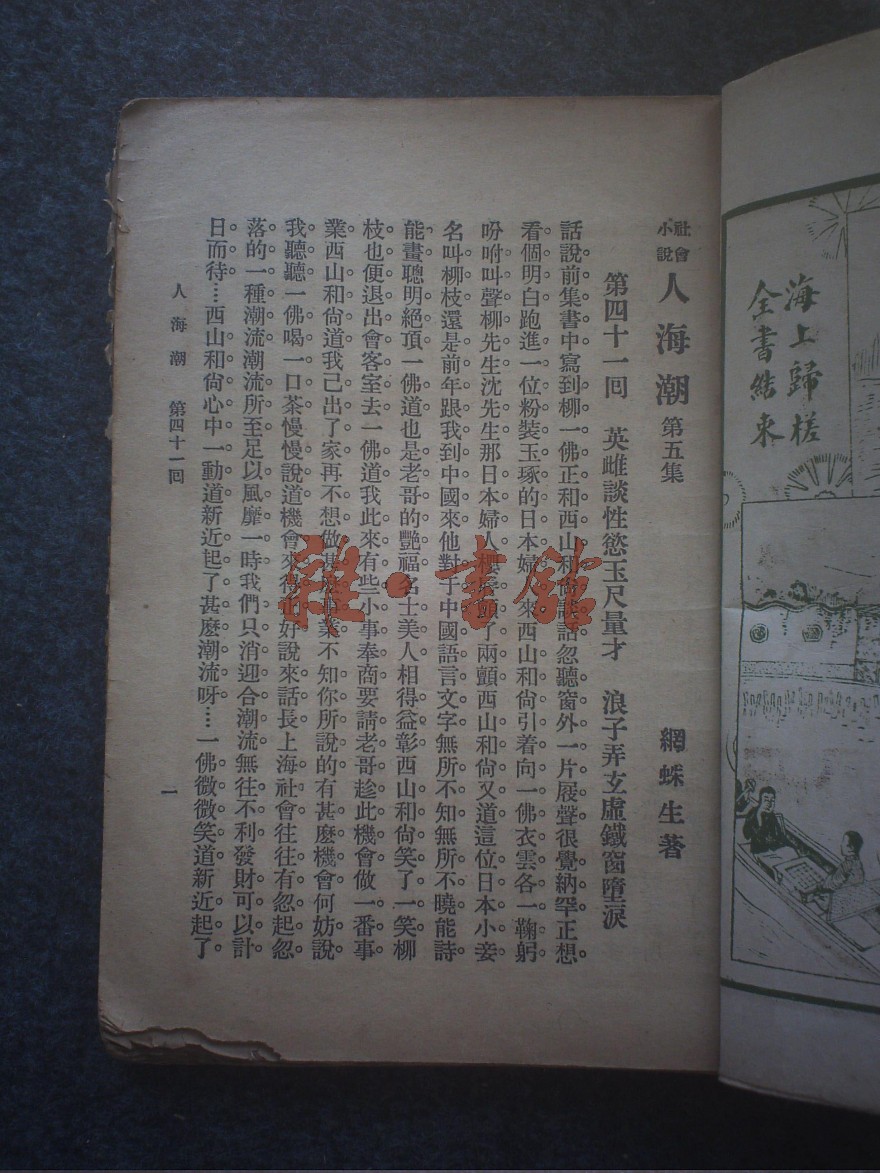 海上歸槎
全書結束
社會
小說
人海潮 第五集 網蛛生著
第四十一回 英雌談性慾玉尺量才 浪子弄玄虛鐵窗墮淚
話說前集書中寫到柳一佛正和西山和尚談話忽聽窗外一片屐聲很覺納罕正想
看個明白跑進一位粉裝玉琢的日本婦 來西山和尚引着向一佛衣雲各一鞠躬
吩咐叫聲柳先生沈先生那日本婦人櫻 顫了兩顫西山和尚又道這位日本小妾
名叫柳枝還是前年跟我到中國來他對于中國語言文字無所不知無所不曉能詩
能畫聰明絕頂一佛道也是老哥的艷福名士美人相得益彰西山和尚笑了一笑柳
枝也便退出會客室去一佛道我此來有些小事奉商要請老哥趁此機會做一番事
業西山和尚道我己出了家再不想做甚麼事業不知你所說的有甚麼機會何妨說
我聽聽一佛喝一口茶慢慢說道機會來得正好說來話長上海社會往往有忽起忽
落的一種潮流潮流所至足以風靡一時我們只消迎合潮流無往不利發財可以計
日而待⋯⋯西山和尚心中一動道新近起了甚麼潮流呀⋯⋯一佛微微笑道新近起了
人海潮 第四十一回
一
雜·書館